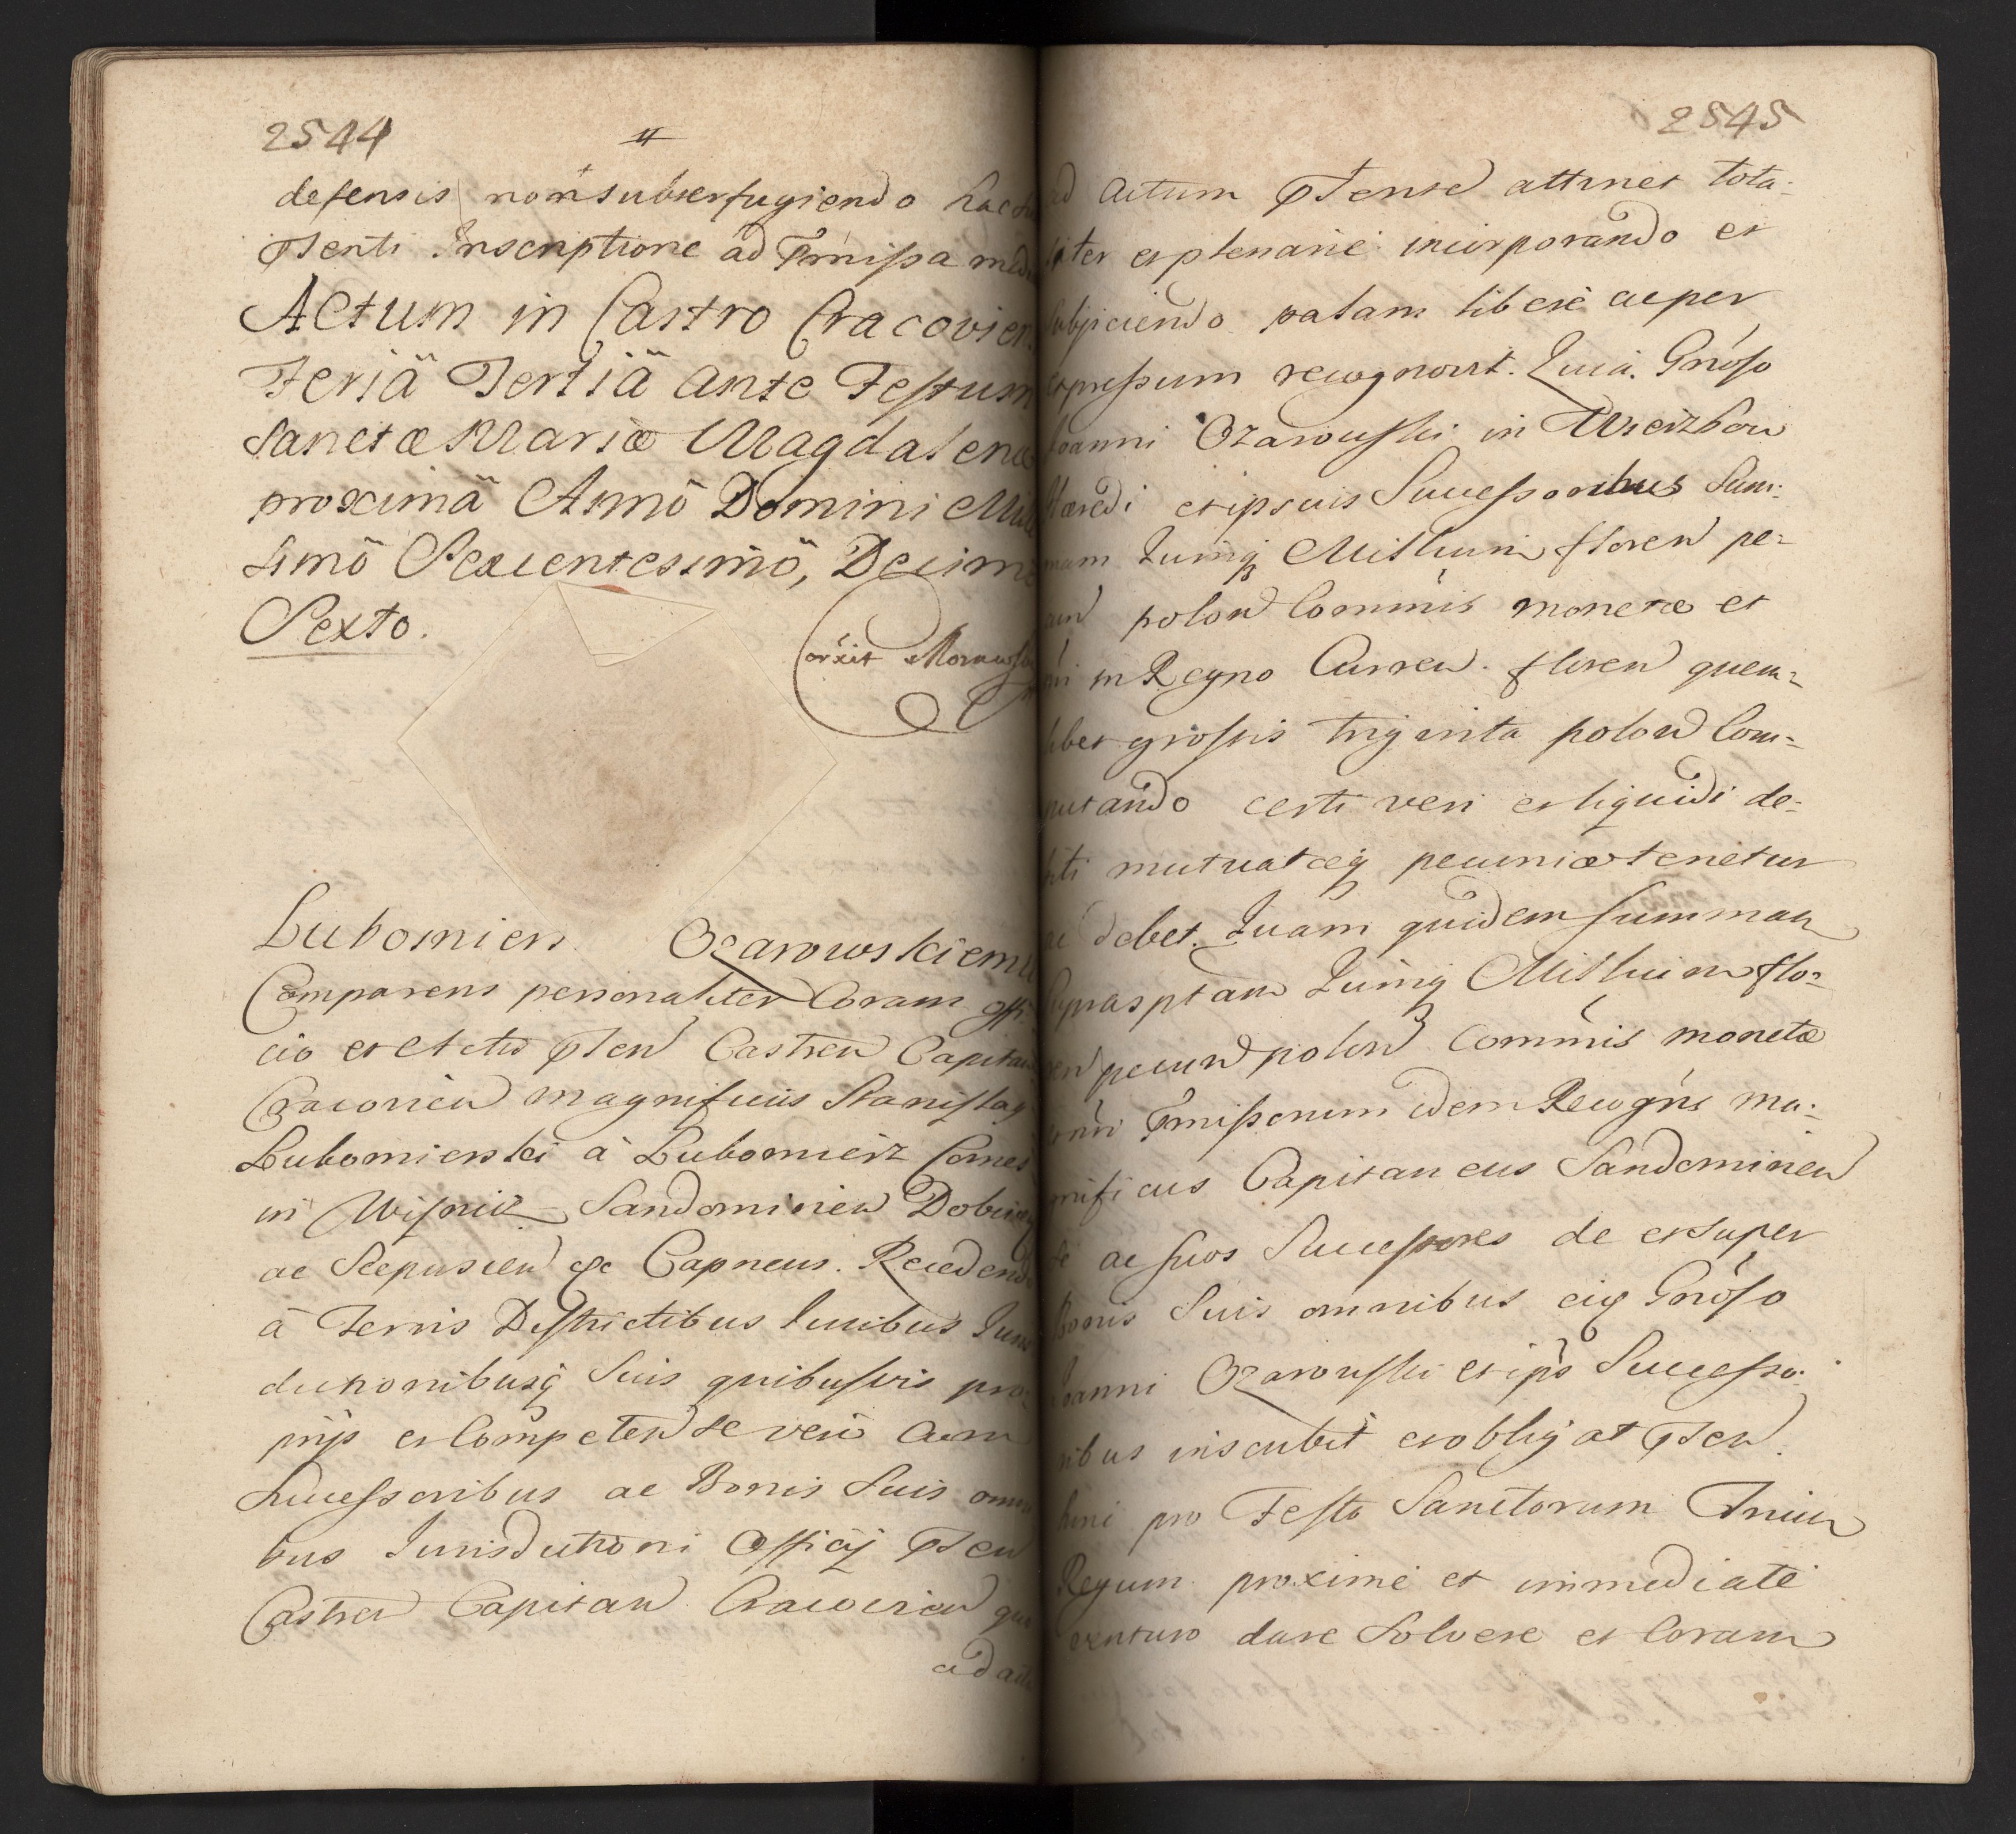 2544
defensis non subterfugiendo hac
Psenti Inscriptione ad Pmissa
Actum in Castro Cracovien
Feriâ Tertiâ ante Festum
Sanctæ Mariæ Magdalenæ
proximâ Annô Domini Mille
simô Sexcentesimô, Decimo
Sexto.
Corxit
Lubomiers. Ozarowskiemu
Comparens personaliter Coram offi
cio et Actis Psen Castren Capitan
Cracovien magnificus Stanislaq
Lubomierski à Lubomierz Comes
in Wisnicz Sandomirien Dobcicen
ac Scepusien &c Capneus. Recedendo
à Terris Districtibus Iuribus Juris
dictionibusq Suis quibusvis pro
prijs et Competen se vero cum
Successoribus ac Bonis Suis omni
bus Iurisdictioni Officij Psen
Castren Capitan Cracovien quo
ad
2545
ad actum Psense attinet tota:
liter et plenarie incorporando et
subjiciendo palam libere ac per
expressum recognovit. Quia Gnoso
Joanni Ozarowski in Wierzbow
Hæredi et ipsius Successoribus Sum:
mam Quinq Millium floren pe:
cun polon Commis monetæ et
in Regno Curren. floren quem:
libet grossis triginta polon Com:
putando certi veri et liquidi de:
biti mutuatæq pecuniæ tenetur
ac debet. Quam quidem summam
suprasptam Quinq Millium flo:
ren pecun polon Commis monetæ
Pmissorum idem Recogns ma:
gnificus Capitaneus Sandomirien
se ac suos Successores de et super
Bonis Suis omnibus eiq Gnoso
Joanni Ozarowski et ips Successo:
ribus inscribit et obligat Psen.
pro Festo Sanctorum Trium
Regum proxime et immediate
venturo dare Solvere et Coram